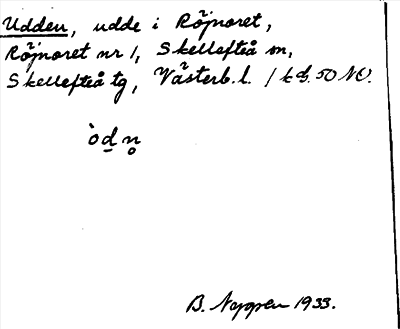 Udden, udde i Röjnoret,
Röjnoret nr 1, Skellefteå sn,
Skellefteå tg, Västerb. l. / k bl. 50 NO.
òdn̥
B. Nygren 1933.